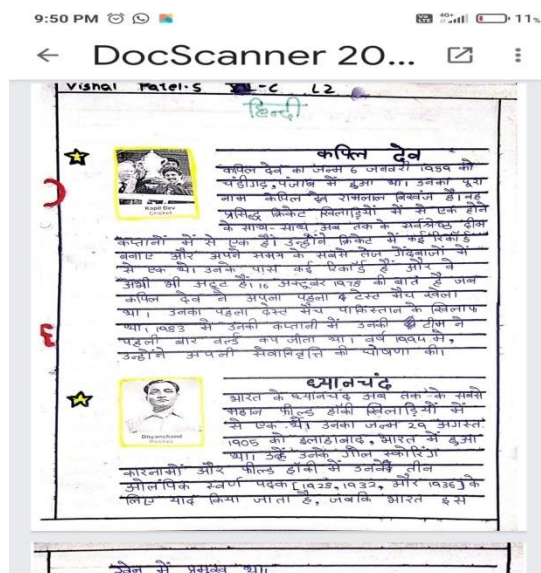 9:50 PM
4G+
11%
DocScanner 20...
Vishal Patel.S XII-C L2
हिन्दी
कपिल देव
कपिल देव का जन्म 6 जनवरी 1959 को
चंडीगढ़, पंजाब में हुआ था। उनका पूरा
नाम कपिल देव रामलाल निखंज है। वह
प्रसिद्ध क्रिकेट खिलाड़ियों में से एक होने
के साथ-साथ अब तक के सर्वश्रेष्ठ टीम
Kapil Dev
Cricket
कप्तानों में से एक हैं। उन्होंने क्रिकेट में कई रिकॉर्ड
बनाए और अपने समय के सबसे तेज गेंदबाजों में
से एक थे। उनके पास कई रिकॉर्ड हैं और वे
अभी भी अटूट हैं। 16 अक्टूबर 1978 की बात है जब
कपिल देव ने अपना पहला टेस्ट मैच खेला
था। उनका पहला टेस्ट मैच पाकिस्तान के खिलाफ
था। 1983 में उनकी कप्तानी में उनकी टीम ने
पहली बार वर्ल्ड कप जीता था। वर्ष 1994 में,
उन्होंने अपनी सेवानिवृत्ति की घोषणा की।
ध्यानचंद
भारत के ध्यानचंद अब तक के सबसे
महान फील्ड हॉकी खिलाड़ियों में
से एक थे। उनका जन्म 29 अगस्त
1905 को इलाहाबाद, भारत में हुआ
था। उन्हें उनके गोल स्कोरिंग
Dhyanchand
Hockey
कारनामों और फील्ड हॉकी में उनके तीन
ओलंपिक स्वर्ण पदक [1928, 1932, और 1936] के
लिए याद किया जाता है, जबकि भारत इस
खेल में प्रमुख था।